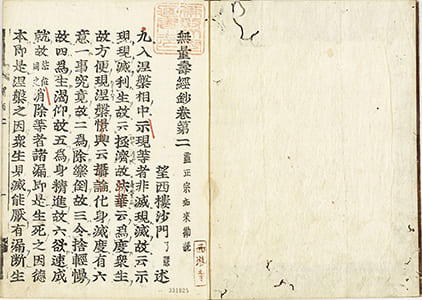 無量壽經鈔卷第二 盡正宗如來勸説
望西樓沙門 了慧 述
九入涅槃相中示現等者非滅現滅故示
現現滅利生故云拯濟故法華云爲度衆生
故方便現涅槃憬興云攝論化身滅度有六
意一事究竟故二爲除樂倒故三令捨輕慢
故四爲生渴仰故五爲身精進故六欲速成
就故 消除等者諸漏即是生死之因德
本即是涅槃之因衆生見滅能厭有漏斷生
331825